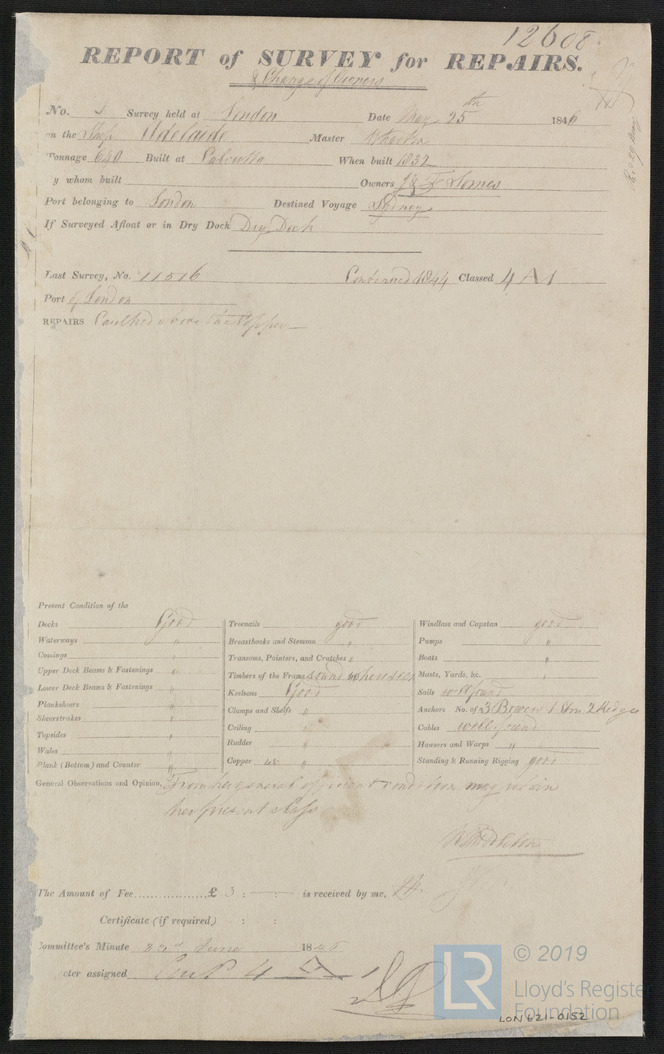 12608
REPORT of SURVEY for REPAIRS.
& Change of Owners
No. Survey held at London Date May 25th 1846
on the Ship Adelaide Master
Tonnage 640 Built at Calcutta When built 1832
y whom built Owners J & F Somes
Port belonging to London Destined Voyage Sydney
If Surveyed Afloat or in Dry Dock Dry Dock
Last Survey, No. 11516 Continued 1844 Classed 4 A 1
Port of London
REPAIRS Caulked above the Copper
Present Condition of the
Decks Good Treenails good Windlass and Capstan good
Waterways " Breasthooks and Stemson " Pumps "
Comings " Transoms, Pointers, and Crutches " Boats "
Upper Deck Beams & Fastenings " Timbers of the Frame sound where seen Masts, Yards, &c. "
Lower Deck Beams & Fastenings " Keelsons Good Sails well found
Plankshears " Clamps and Shelfs " Anchors No. of 3 Bower 1 Strm 2 Kedges
Sheerstrakes " Ceiling " Cables well found
Topsides " Rudder " Hawsers and Warps "
Wales " Copper Standing & Running Rigging good
Plank (Bottom) and Counter "
General Observations and Opinion, From her general appearance & condition may retain
her present class
The Amount of Fee £ 3 : — : — is received by me,
Certificate (if required) : :
Committee's Minute June 1846
cter assigned 4 A
© 2019
LR Lloyd's Register
Foundation
LON621-0152